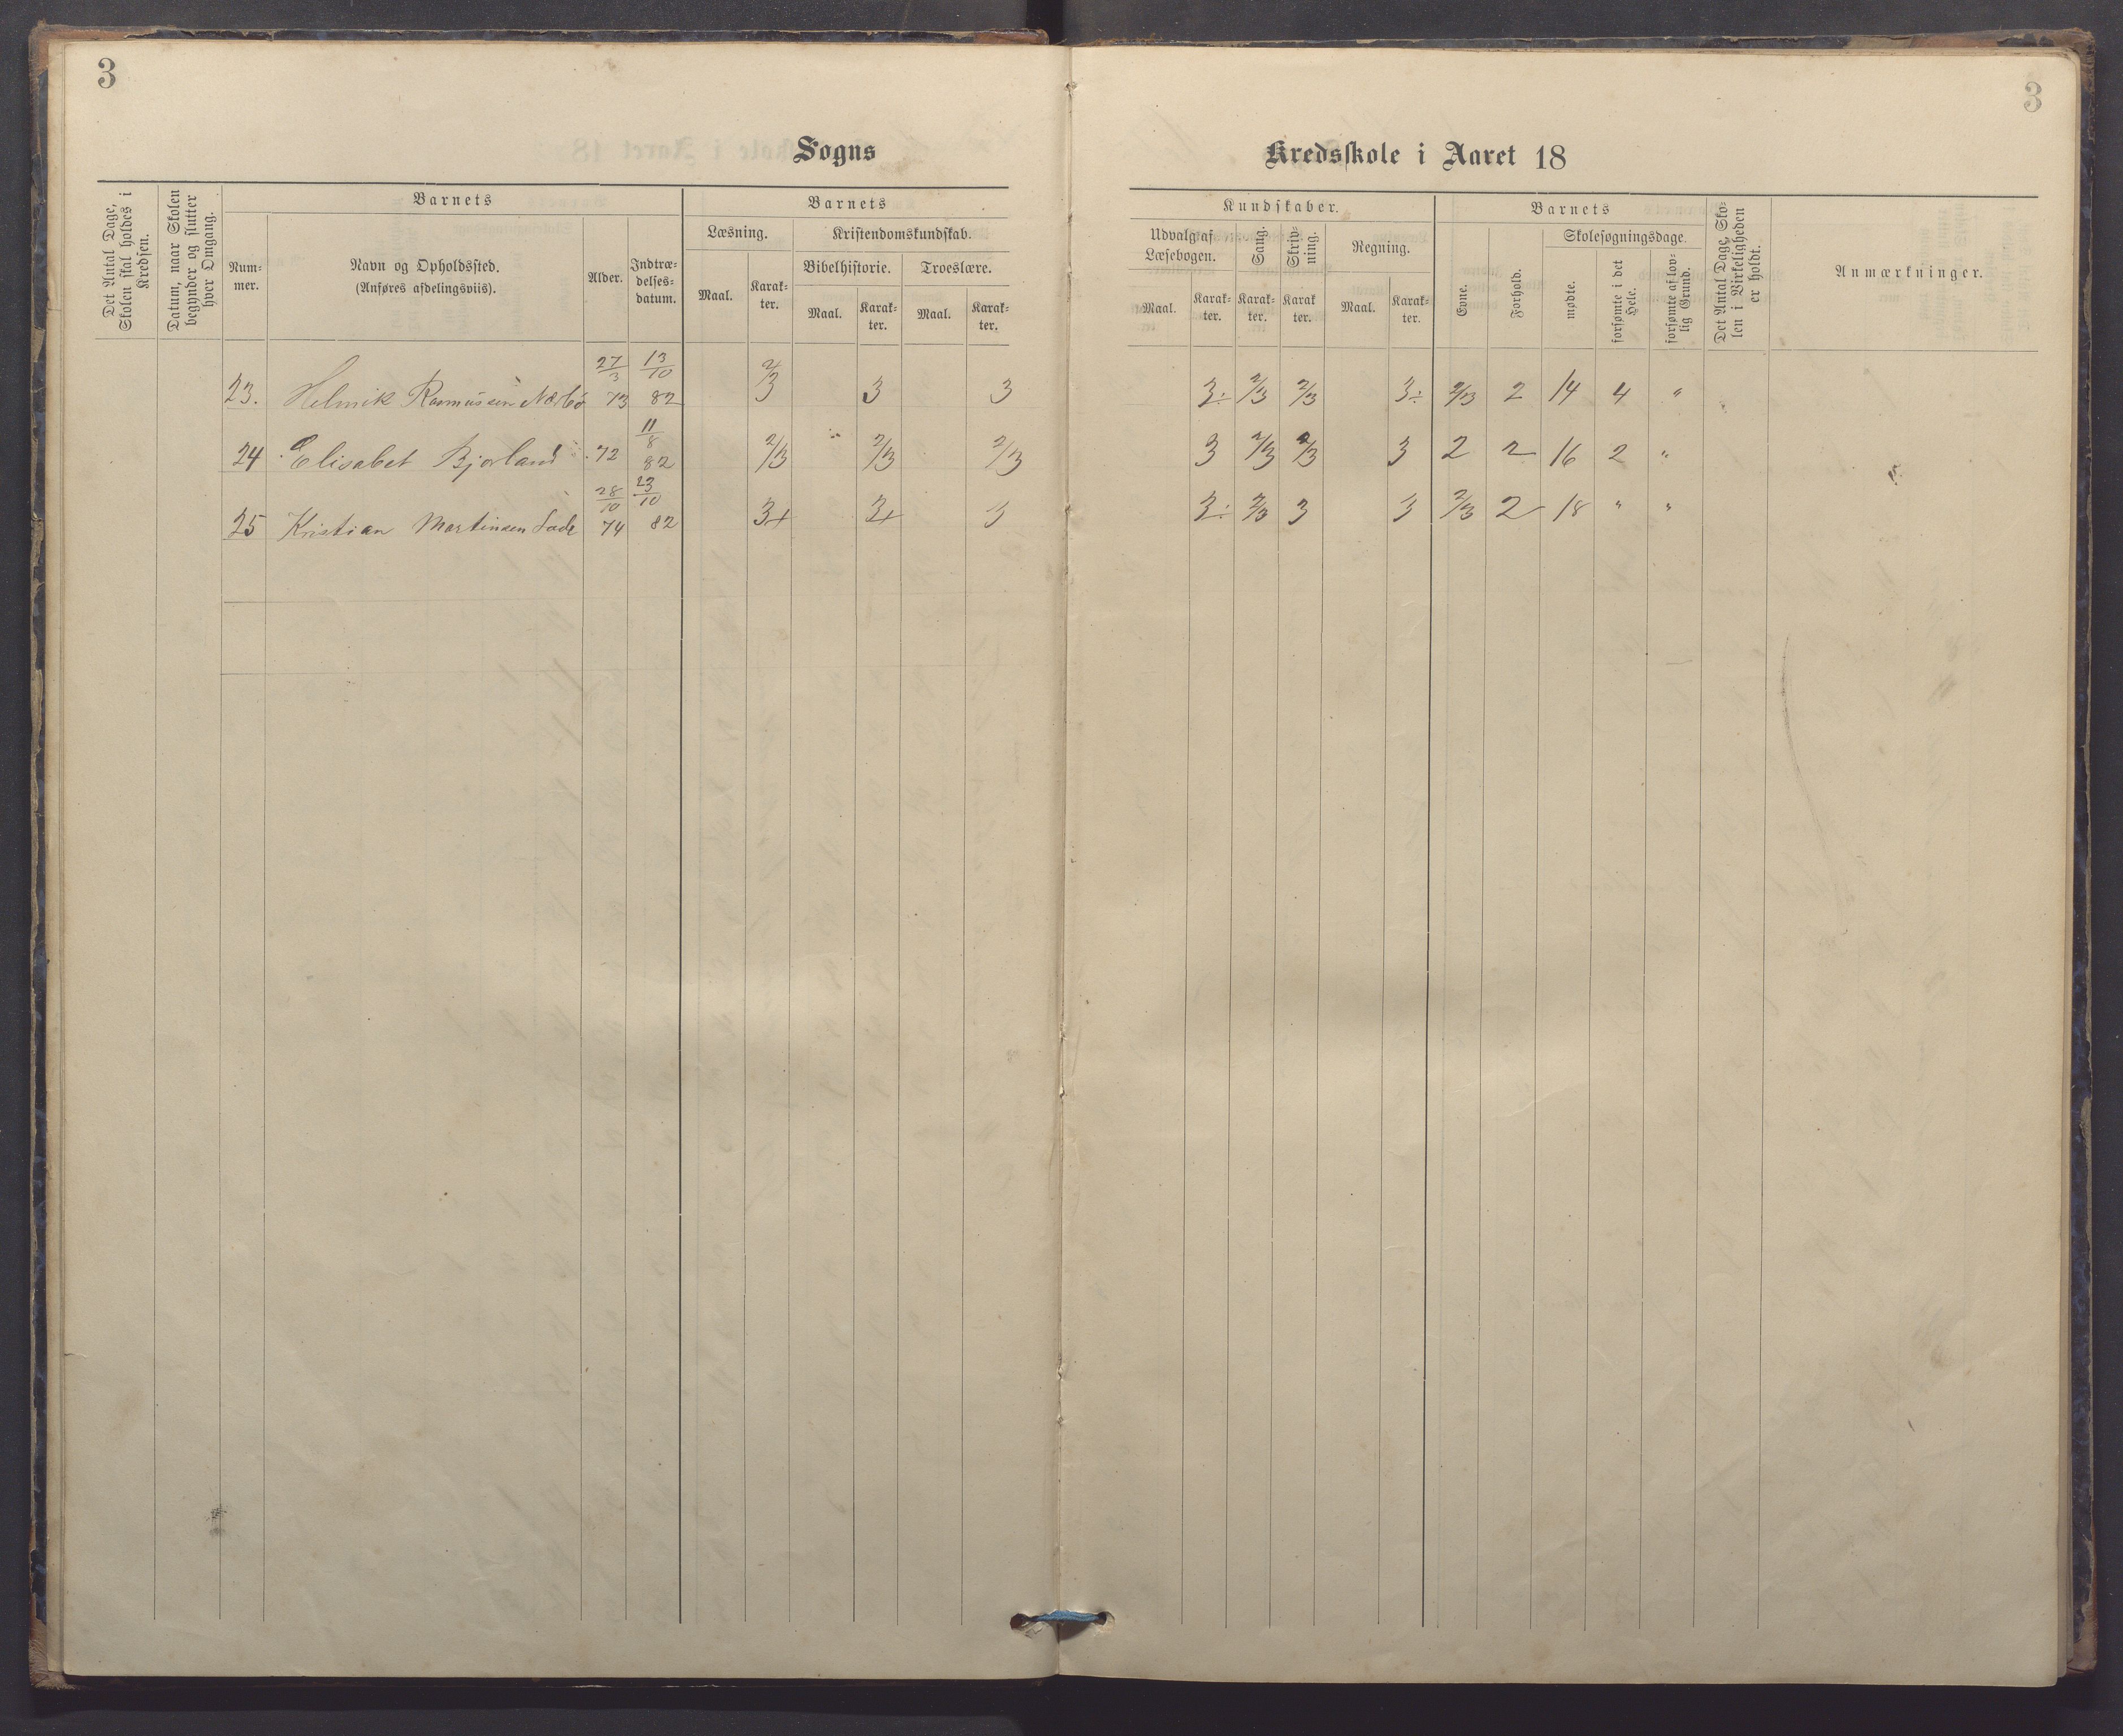 3
3
Sogns
Kredsskole i Aaret 18
Det Antal Dage, Skolen skal holdes i Kredsen.
Datum, naar Skolen begynder og slutter hver Omgang.
Barnets
Num-
mer.
Navn og Opholdssted.
(Anføres afdelingsviis).
Alder.
Indtræ-
delses-
datum.
Barnets
Læsning.
Maal.
Karak-
ter.
Kristendomskundskab.
Bibelhistorie.
Maal.
Karak-
ter.
Troeslære.
Maal.
Karak-
ter.
Kundskaber.
Udvalg af
Læsebogen.
Maal.
Karak-
ter.
Sang.
Karak-
ter.
Skriv-
ning.
Karak
ter.
Regning.
Maal.
Karak-
ter.
Barnets
Evne.
Forhold.
Skolesøgningsdage.
mødte.
forsømte i det
Hele.
forsømte af lov-
lig Grund.
Det Antal Dage, Sko-
len i Virkeligheden
er holdt.
Anmærkninger.
23. Helmik Rasmussen Nærbø 27/3 73 13/10 82 2/3 3 3 3÷ 2/3 2/3 3÷ 2/3 2 14 4 "
24 Elisabet Bjorland 72 11/8 82 2/3 2/3 2/3 3 2/3 2/3 3 2 2 16 2 "
25 Kristian Martinsen 28/10 74 23/10 82 3+ 3+ 3 3÷ 2/3 3 3 2/3 2 18 " "